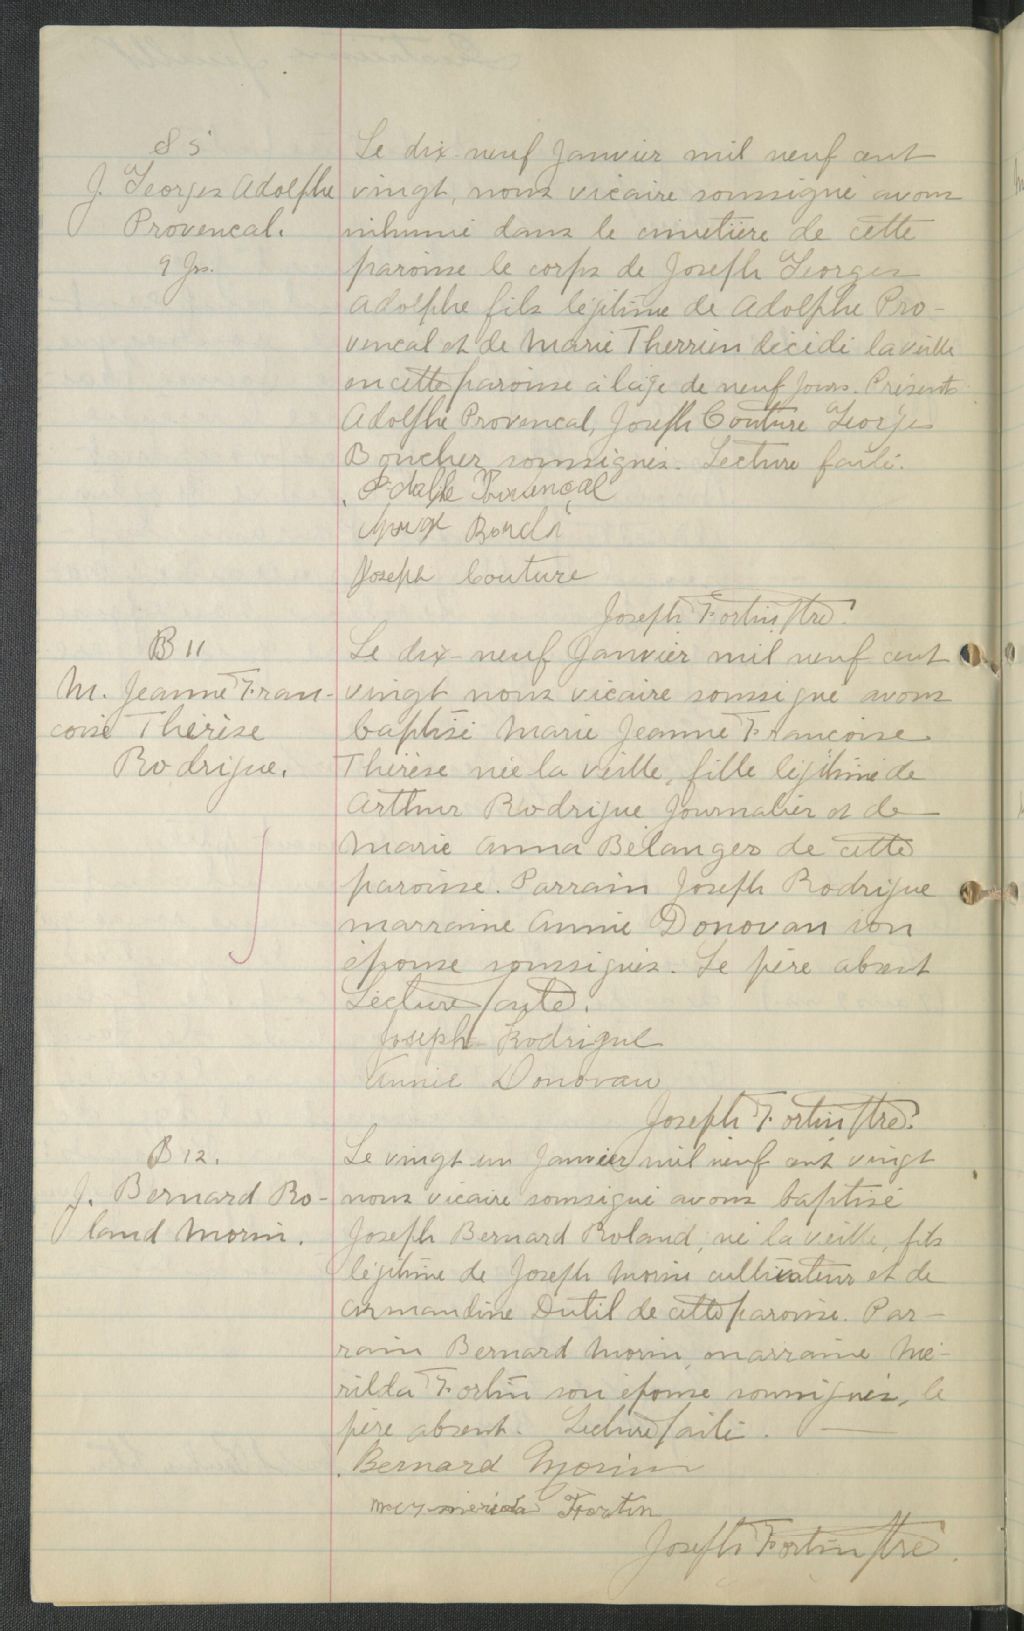 S 5
J. Georges Adolphe
Provencal.
9 Jrs.
Le dix-neuf Janvier mil neuf cent
vingt, nous vicaire soussigné avons
inhumé dans le cimetière de cette
paroisse le corps de Joseph Georges
Adolphe fils légitime de Adolphe Pro-
vencal et de Marie Therrien décédé la veille
en cette paroisse à l'âge de neuf jours. Présents:
Adolphe Provencal, Joseph Couture Georges
Boucher soussignés. Lecture faite.
Adolphe Provençal
Joseph Couture
Joseph Fortin Ptre.
B 11
M. Jeanne Fran-
coise Thérèse
Rodrigue.
Le dix-neuf Janvier mil neuf cent
vingt nous vicaire soussigné avons
baptisé Marie Jeanne Francoise
Thérèse née la veille, fille légitime de
Arthur Rodrigue Journalier et de
Marie Anna Bélanger de cette
paroisse. Parrain Joseph Rodrigue
marraine Annie Donovan son
épouse soussignés. Le père absent
Lecture faite.
Joseph Rodrigue
Annie Donovan
Joseph Fortin Ptre.
B 12.
J. Bernard Ro-
land Morin.
Le vingt-un Janvier mil neuf cent vingt
nous vicaire soussigné avons baptisé
Joseph Bernard Roland, né la veille, fils
légitime de Joseph Morin cultivateur et de
Armandine Dutil de cette paroisse. Par-
rain Bernard Morin, marraine Mé-
rilda Fortin son épouse soussignés, le
père absent. Lecture faite.
Bernard Morin
Fortin
Joseph Fortin Ptre.